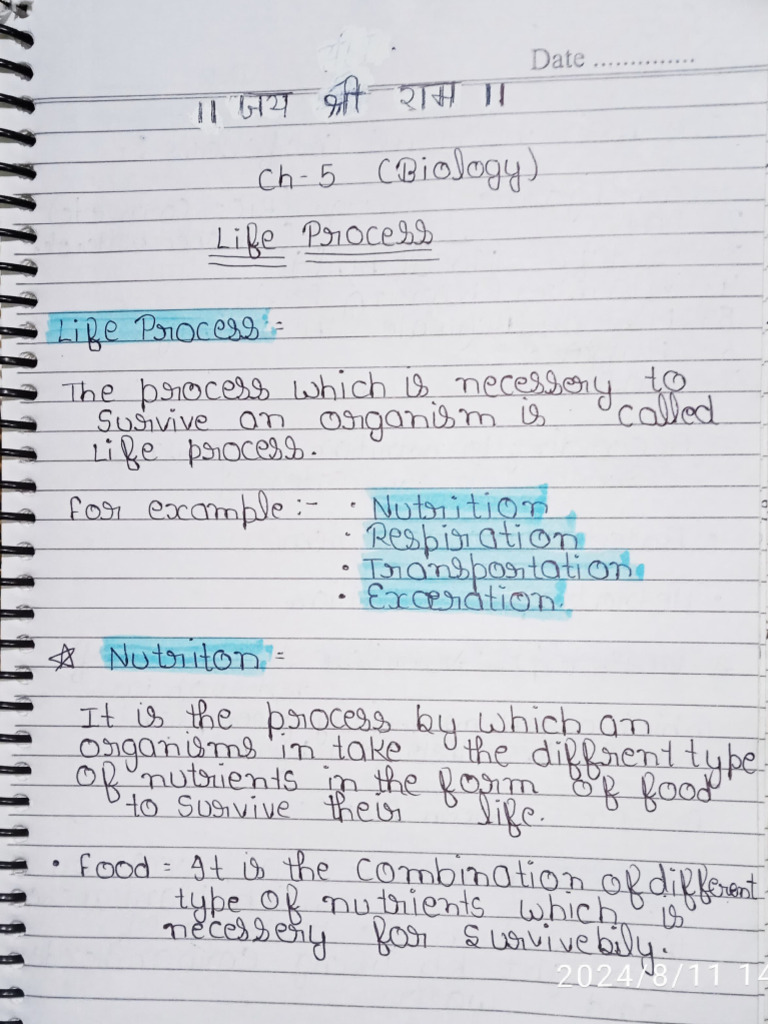 Date ..............
|| जय श्री राम ||
Ch-5 (Biology)
Life Process
Life Process:=
The process which is necessery to
survive an organism is called
Life process.
For example :- • Nutrition
• Respiration
• Transportation
• Exceration.
☆ Nutriton =
It is the process by which an
organisms in take the diffrent type
of nutrients in the form of food
to survive their life.
• Food = It is the combination of different
type of nutrients which is
necessery for survivebily.
2024/8/11 14